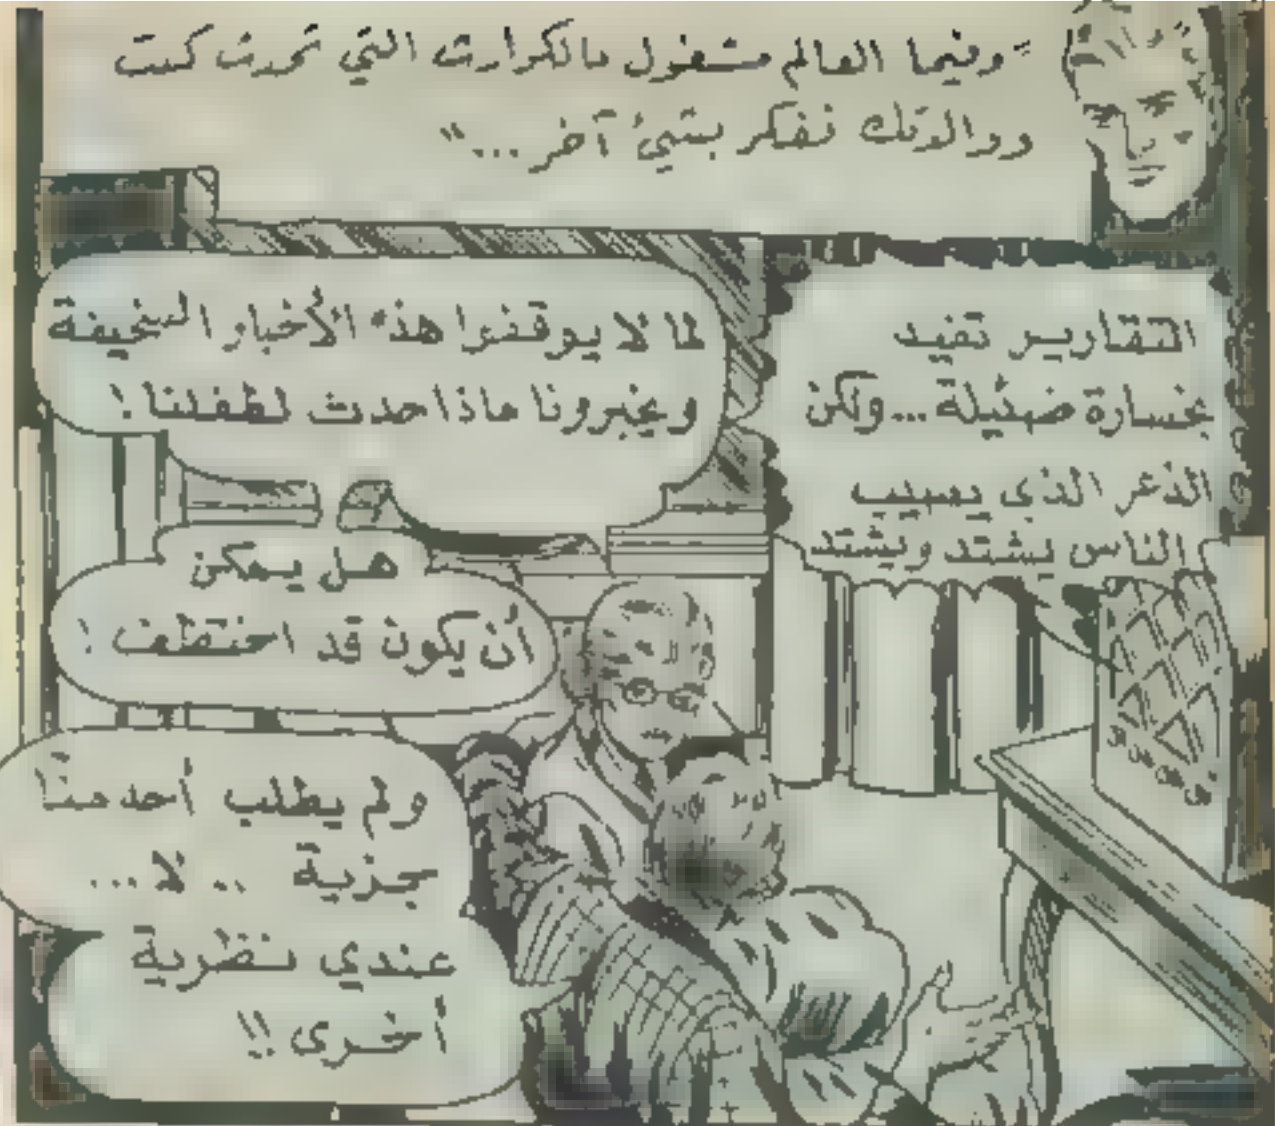 "وفيما العالم مشغول بالكوارث التي تحدث كنت
ووالدتك نفكر بشيئ آخر..."
التقارير تفيد
بخسارة ضئيلة...ولكن
الذعر الذي يصيب
الناس يشتد ويشتد
لما لا يوقفوا هذه الأخبار السخيفة
ويخبرونا ماذا حدث لطفلنا!
هل يمكن
أن يكون قد اختطف!
ولم يطلب أحد منا
جزية .. لا...
عندي نظرية
أخرى!!